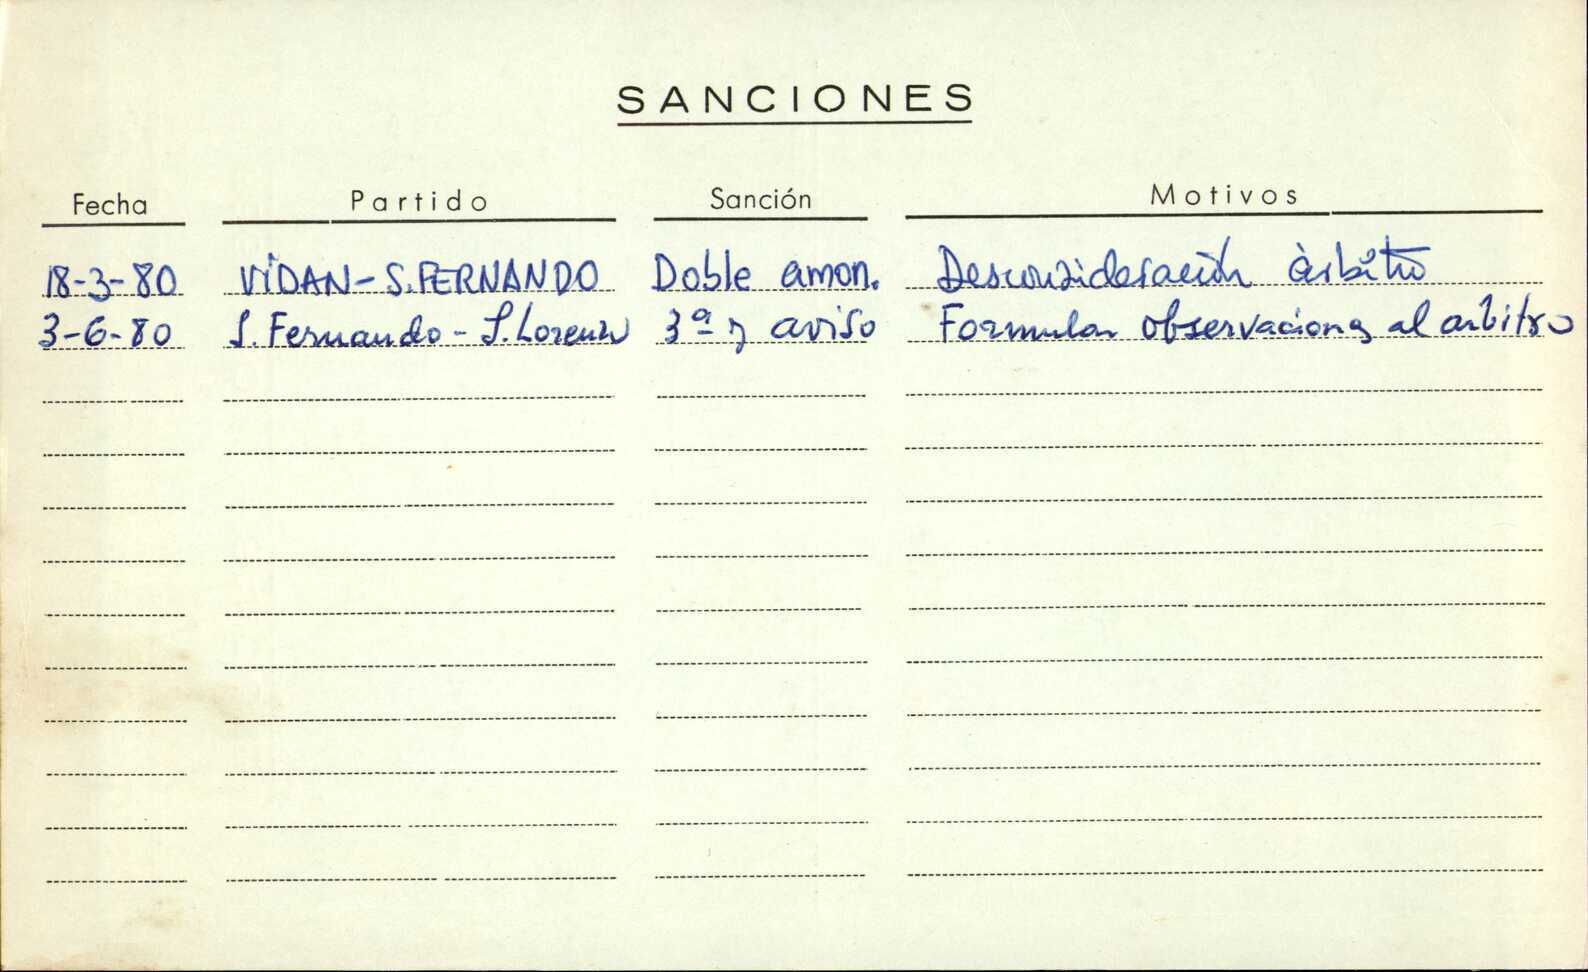 SANCIONES
Fecha Partido Sanción Motivos
18-3-80 VIDAN-S.FERNANDO Doble amon. Desconsideración árbitro
3-6-80 S.Fernando-S.Lorenzo 3ª y aviso Formular observaciones al arbitro